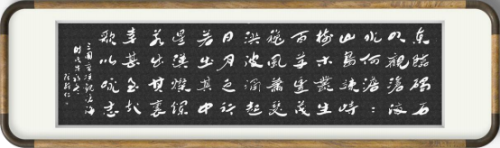 東臨碣石
以觀滄海
水何澹澹
山島竦峙
樹木叢生
百草豐茂
秋風蕭瑟
洪波湧起
日月之行
若出其中
星漢燦爛
若出其裏
幸甚至哉
歌以詠志
三國曹操觀滄海